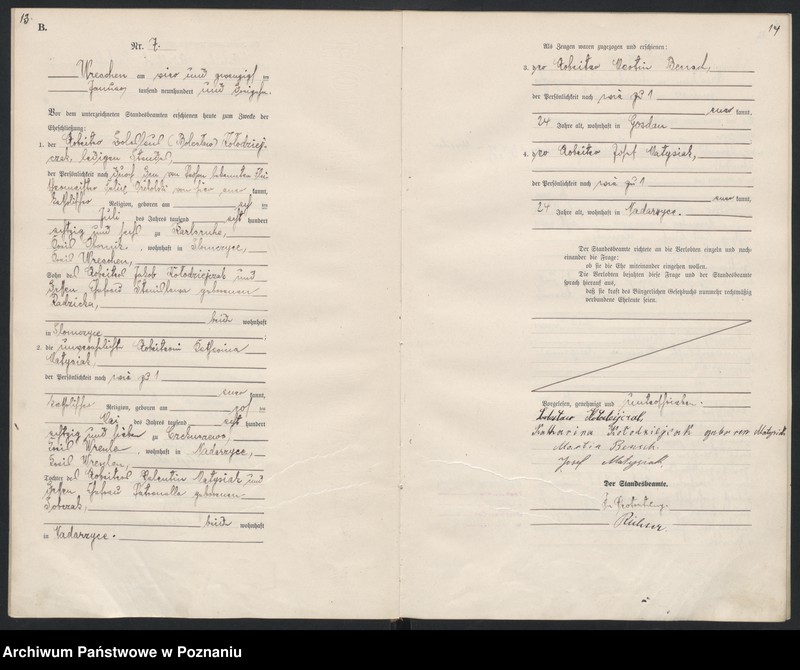 13.
B.
Nr. 7.
Wreschen am vier und zwanzigsten
Januar tausend neunhundert und
Vor dem unterzeichneten Standesbeamten erschienen heute zum Zwecke der
Eheschließung:
1. der Arbeiter Boleslaus (Boleslaw) Kolodziej-
czak, ledigen Standes,
der Persönlichkeit nach durch den
kannt,
katholischer Religion, geboren am
Juli des Jahres tausend acht hundert
achtzig und sechs zu Karlsruhe,
Kreis Obornik, wohnhaft in Slomczyce,
Kreis Wreschen,
Sohn des Arbeiters Jakob Kolodziejczak und
dessen Ehefrau Stanislawa geborenen
Radzicka,
beide wohnhaft
in Slomczyce
2. die unverehelichte Arbeiterin Katharina
Matysiak,
der Persönlichkeit nach wie zu 1
kannt,
katholischer Religion, geboren am
Mai des Jahres tausend acht hundert
achtzig und sieben zu
Kreis , wohnhaft in Nadarzyce,
Kreis Wreschen,
Tochter des Arbeiters Valentin Matysiak und
dessen Ehefrau Petronella geborenen
beide wohnhaft
in Nadarzyce.
14
Als Zeugen waren zugezogen und erschienen:
3. der Arbeiter Martin
der Persönlichkeit nach wie zu 1
kannt,
24 Jahre alt, wohnhaft in
4. der Arbeiter Josef Matysiak,
der Persönlichkeit nach wie zu 1
kannt,
24 Jahre alt, wohnhaft in Nadarzyce.
Der Standesbeamte richtete an die Verlobten einzeln und nach-
einander die Frage:
ob sie die Ehe miteinander eingehen wollen.
Die Verlobten bejahten diese Frage und der Standesbeamte
sprach hierauf aus,
daß sie kraft des Bürgerlichen Gesetzbuchs nunmehr rechtmäßig
verbundene Eheleute seien.
Vorgelesen, genehmigt und unterschrieben.
Boleslaw Kolodziejczak
Katharina Kolodziejczak geborene Matysiak
Martin
Josef Matysiak
Der Standesbeamte.
In Vertretung
Archiwum Państwowe w Poznaniu